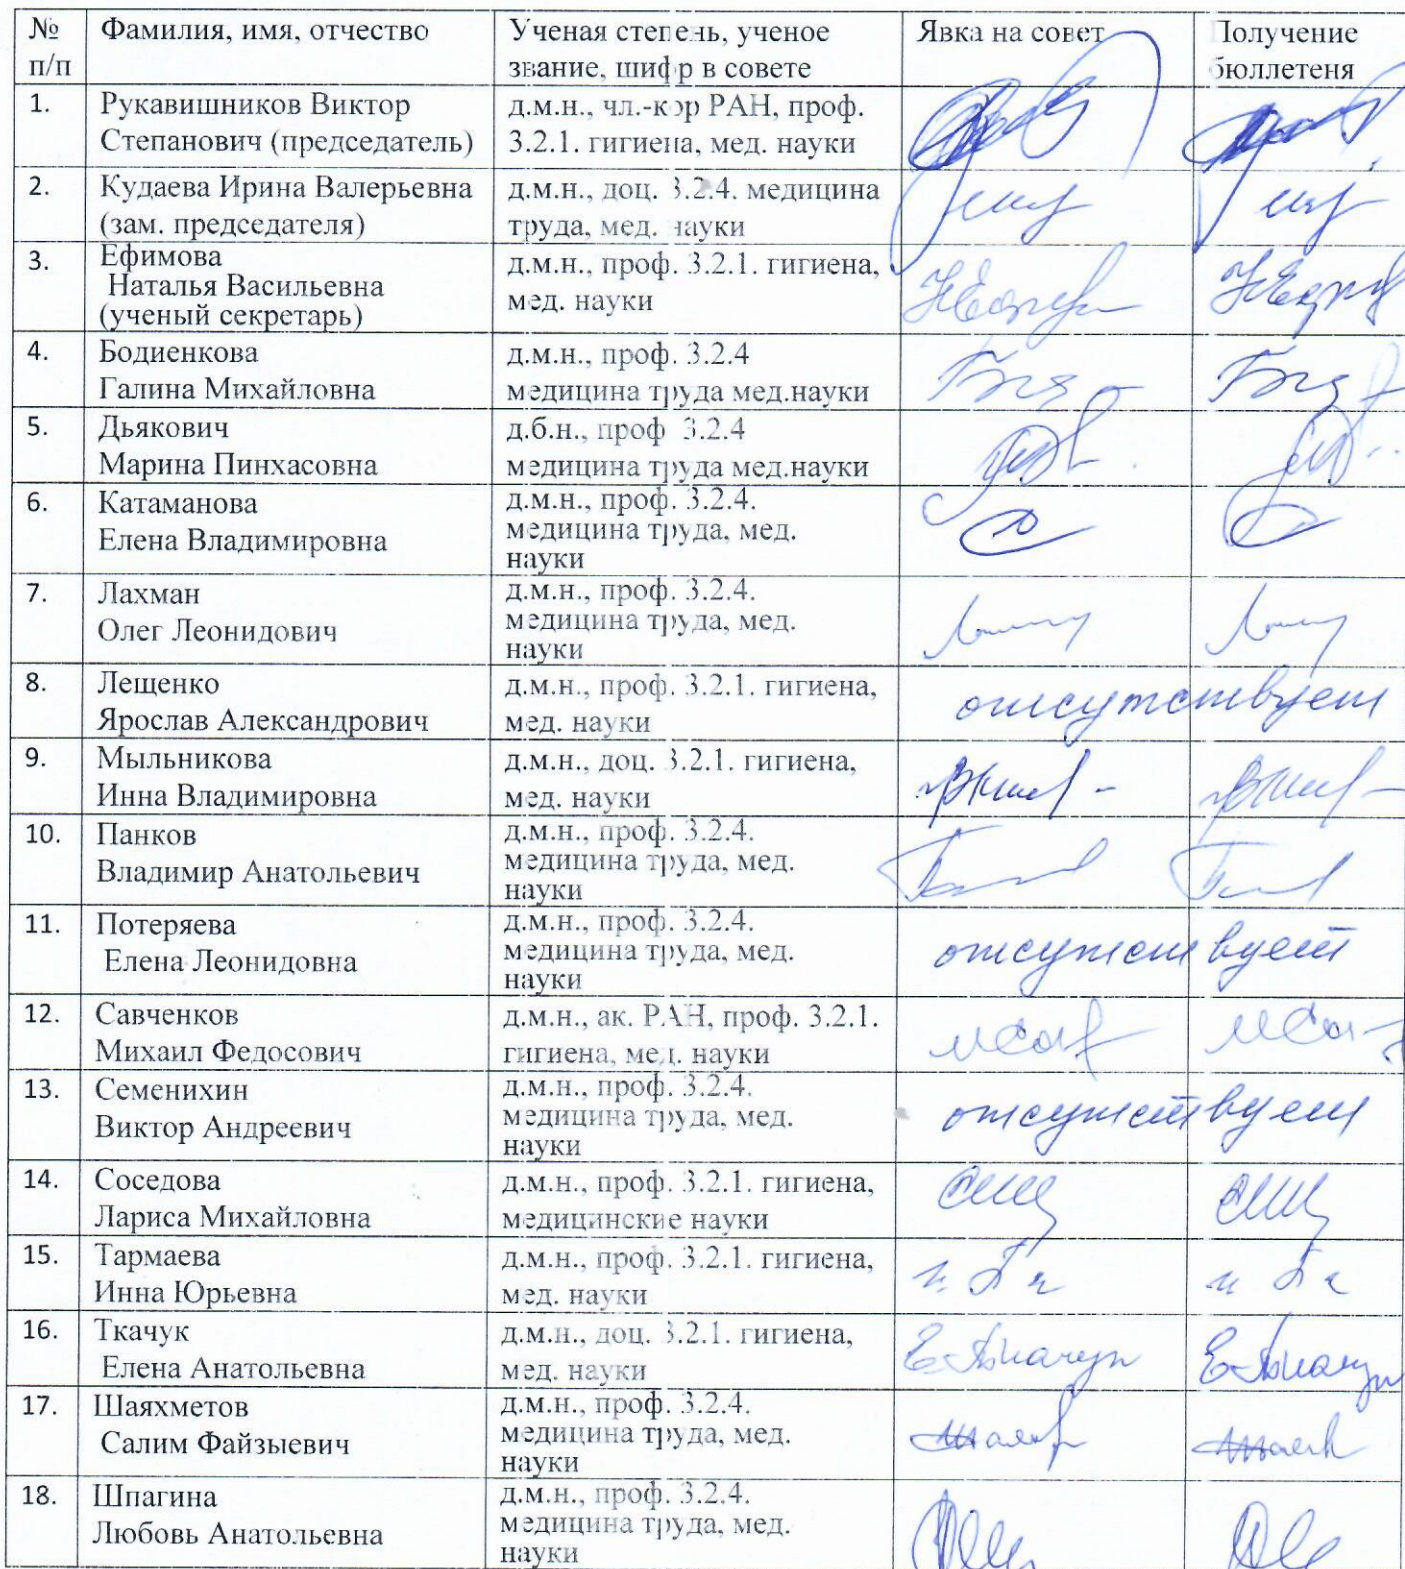 № п/п Фамилия, имя, отчество Ученая степень, ученое звание, шифр в совете Явка на совет Получение бюллетеня
1. Рукавишников Виктор Степанович (председатель) д.м.н., чл.-кор РАН, проф. 3.2.1. гигиена, мед. науки
2. Кудаева Ирина Валерьевна (зам. председателя) д.м.н., доц. 3.2.4. медицина труда, мед. науки
3. Ефимова Наталья Васильевна (ученый секретарь) д.м.н., проф. 3.2.1. гигиена, мед. науки
4. Бодиенкова Галина Михайловна д.м.н., проф. 3.2.4 медицина труда мед.науки
5. Дьякович Марина Пинхасовна д.б.н., проф 3.2.4 медицина труда мед.науки
6. Катаманова Елена Владимировна д.м.н., проф. 3.2.4. медицина труда, мед. науки
7. Лахман Олег Леонидович д.м.н., проф. 3.2.4. медицина труда, мед. науки
8. Лещенко Ярослав Александрович д.м.н., проф. 3.2.1. гигиена, мед. науки отсутствует
9. Мыльникова Инна Владимировна д.м.н., доц. 3.2.1. гигиена, мед. науки
10. Панков Владимир Анатольевич д.м.н., проф. 3.2.4. медицина труда, мед. науки
11. Потеряева Елена Леонидовна д.м.н., проф. 3.2.4. медицина труда, мед. науки отсутствует
12. Савченков Михаил Федосович д.м.н., ак. РАН, проф. 3.2.1. гигиена, мед. науки
13. Семенихин Виктор Андреевич д.м.н., проф. 3.2.4. медицина труда, мед. науки отсутствует
14. Соседова Лариса Михайловна д.м.н., проф. 3.2.1. гигиена, медицинские науки
15. Тармаева Инна Юрьевна д.м.н., проф. 3.2.1. гигиена, мед. науки
16. Ткачук Елена Анатольевна д.м.н., доц. 3.2.1. гигиена, мед. науки
17. Шаяхметов Салим Файзыевич д.м.н., проф. 3.2.4. медицина труда, мед. науки
18. Шпагина Любовь Анатольевна д.м.н., проф. 3.2.4. медицина труда, мед. науки